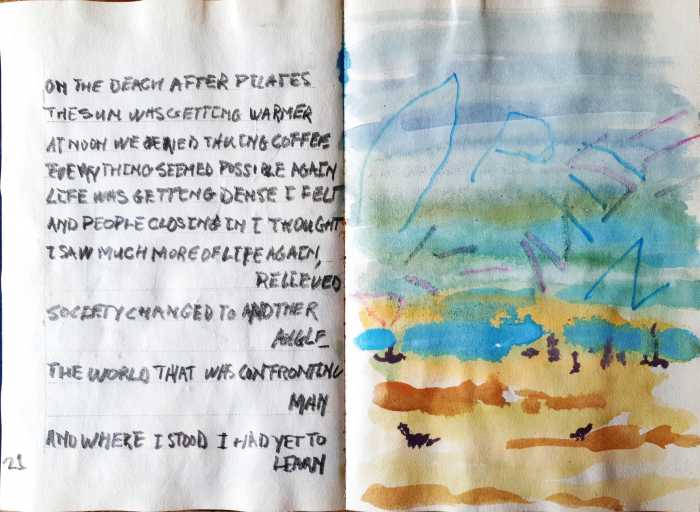 ON THE BEACH AFTER PILATES
THE SUN WAS GETTING WARMER
AT NOON WE DENIED TAKING COFFEE
EVERYTHING SEEMED POSSIBLE AGAIN
LIFE WAS GETTING DENSE I FELT
AND PEOPLE CLOSING IN I THOUGHT
I SAW MUCH MORE OF LIFE AGAIN,
RELIEVED
SOCIETY CHANGED TO ANOTHER
ANGLE
THE WORLD THAT WAS CONFRONTING
MAN
AND WHERE I STOOD I HAD YET TO
LEARN
21